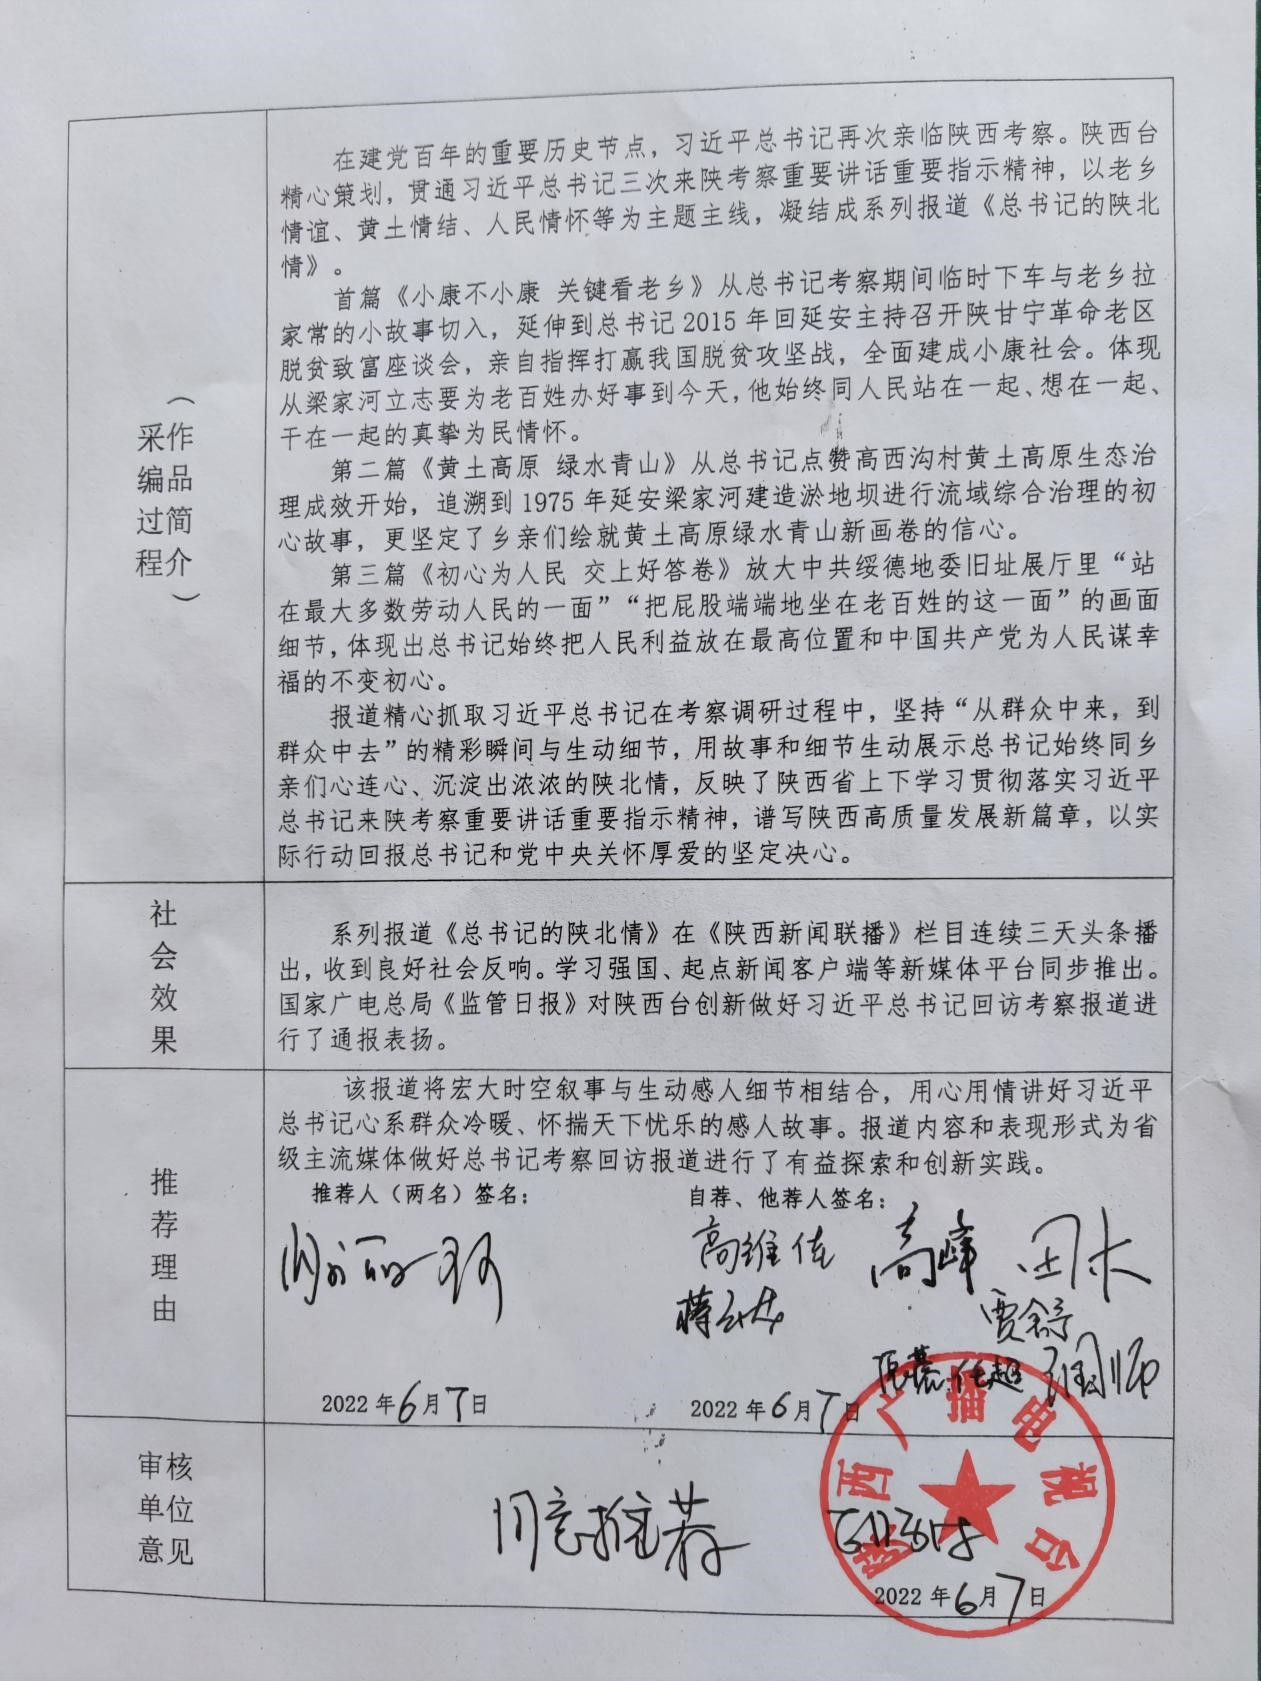 （作品简介）
采编过程
在建党百年的重要历史节点，习近平总书记再次亲临陕西考察。陕西台
精心策划，贯通习近平总书记三次来陕考察重要讲话重要指示精神，以老乡
情谊、黄土情结、人民情怀等为主题主线，凝结成系列报道《总书记的陕北
情》。
首篇《小康不小康 关键看老乡》从总书记考察期间临时下车与老乡拉
家常的小故事切入，延伸到总书记2015年回延安主持召开陕甘宁革命老区
脱贫致富座谈会，亲自指挥打赢我国脱贫攻坚战，全面建成小康社会。体现
从梁家河立志要为老百姓办好事到今天，他始终同人民站在一起、想在一起、
干在一起的真挚为民情怀。
第二篇《黄土高原 绿水青山》从总书记点赞高西沟村黄土高原生态治
理成效开始，追溯到1975年延安梁家河建造淤地坝进行流域综合治理的初
心故事，更坚定了乡亲们绘就黄土高原绿水青山新画卷的信心。
第三篇《初心为人民 交上好答卷》放大中共绥德地委旧址展厅里“站
在最大多数劳动人民的一面”“把屁股端端地坐在老百姓的这一面”的画面
细节，体现出总书记始终把人民利益放在最高位置和中国共产党为人民谋幸
福的不变初心。
报道精心抓取习近平总书记在考察调研过程中，坚持“从群众中来，到
群众中去”的精彩瞬间与生动细节，用故事和细节生动展示总书记始终同乡
亲们心连心、沉淀出浓浓的陕北情，反映了陕西省上下学习贯彻落实习近平
总书记来陕考察重要讲话重要指示精神，谱写陕西高质量发展新篇章，以实
际行动回报总书记和党中央关怀厚爱的坚定决心。
社会效果
系列报道《总书记的陕北情》在《陕西新闻联播》栏目连续三天头条播
出，收到良好社会反响。学习强国、起点新闻客户端等新媒体平台同步推出。
国家广电总局《监管日报》对陕西台创新做好习近平总书记回访考察报道进
行了通报表扬。
推荐理由
该报道将宏大时空叙事与生动感人细节相结合，用心用情讲好习近平
总书记心系群众冷暖、怀揣天下忧乐的感人故事。报道内容和表现形式为省
级主流媒体做好总书记考察回访报道进行了有益探索和创新实践。
推荐人（两名）签名：
自荐、他荐人签名：
高维佳 高峰 田大
贾舒
任超
2022年6月7日
2022年6月7日
审核
单位
意见
同意推荐
陕西广播电视台
2022年6月7日